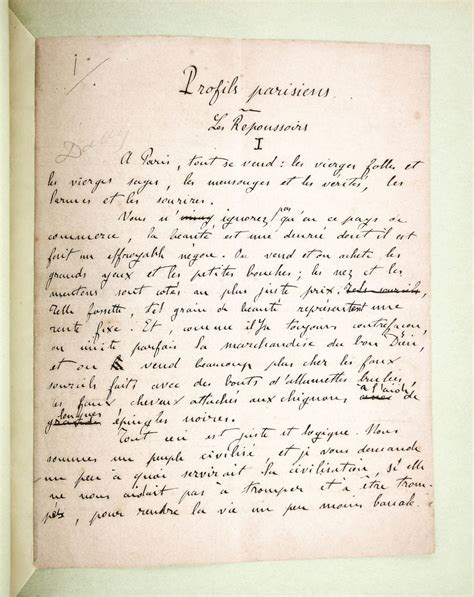 1.
Profils parisiens
Les Repoussoirs
I
A Paris, tout se vend: les vierges folles et
les vierges sages, les mensonges et les vérités, les
larmes et les sourires.
Vous n' ignorez pas qu'en ce pays de
commerce, la beauté est une denrée dont il est
fait un effroyable négoce. On vend et on achète les
grands yeux et les petites bouches; les nez et les
mentons sont cotés au plus juste prix. Tels sourcils,
Telle fossette, tel grain de beauté représentent une
rente fixe. Et, comme il y a toujours contrefaçon,
on imite parfois la marchandise du bon Dieu,
et on vend beaucoup plus cher les faux
sourcils faits avec des bouts d'allumettes brulées,
les faux cheveux attachés aux chignons avec à l'aide de
grandes longues épingles noires.
Tout ceci est juste et logique. Nous
sommes un peuple civilisé, et je vous demande
un peu à quoi servirait la civilisation, si elle
ne nous aidait pas à tromper et à être trom-
pés, pour rendre la vie un peu moins banale.